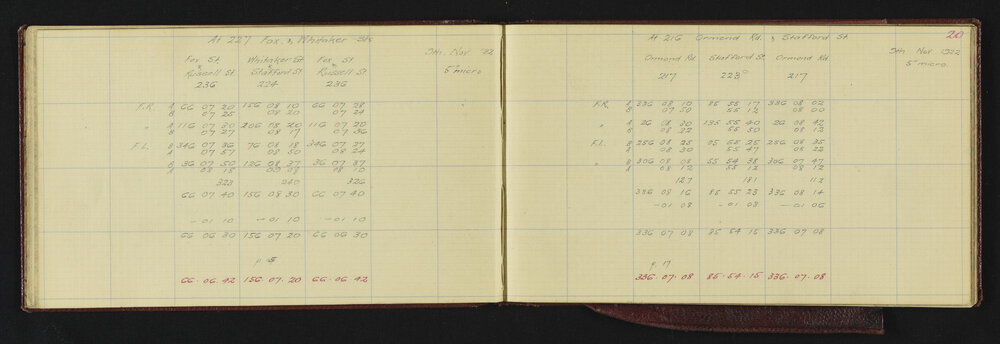 At 227 Fox. & Whitaker Sts
9th. Nov. '22
5" micro
Fox St. Whitaker St Fox St
& & &
Russell St. Stafford St Russell St.
236 224 236
F.R. A 66 07 20 156 08 10 66 07 28
B 07 25 08 20 07 24
" A 116 07 30 206 08 20 116 07 20
B 07 27 08 17 07 36
F.L. B 346 07 36 76 08 18 346 07 27
A 07 57 08 50 08 24
" B 36 07 50 126 08 37 36 07 37
A 08 18 09 08 08 10
323 240 326
66 07 40 156 08 30 66 07 40
- 01 10 - 01 10 - 01 10
66 06 30 156 07 20 66 06 30
p. 15
66. 06. 42 156. 07. 20 66. 06. 42
20
At 216 Ormond Rd. & Stafford St.
9th. Nov. 1922
5" micro.
Ormond Rd. Stafford St. Ormond Rd.
217 223 217
F.R. A 336 08 10 85 55 17 336 08 02
B 07 50 55 12 08 00
" A 26 08 30 135 55 40 26 08 42
B 08 22 55 50 08 12
F.L. B 256 08 25 05 55 25 256 08 35
A 08 30 55 47 08 22
" B 306 08 08 55 54 38 306 07 47
A 08 12 55 12 08 12
127 181 112
336 08 16 85 55 23 336 08 14
- 01 08 - 01 08 - 01 06
336 07 08 85 54 15 336 07 08
p. 17
336. 07. 08 85. 54. 15 336. 07. 08